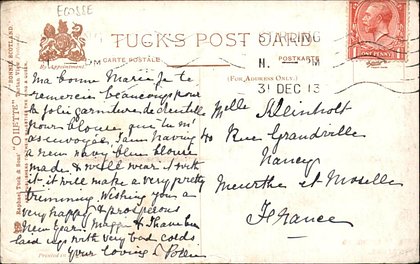 ECOSSE
TUCK'S POST CARD
CARTE POSTALE
POSTKARTE
By Appointment
(FOR ADDRESS ONLY.)
STIRLING
31 DEC 13
ONE PENNY
Raphael Tuck & Sons' "OILETTE"
BONNIE SCOTLAND
Ma bonne Marie Je te
remercie beaucoup pour
la jolie garniture de dentelle
pour blouse que tu m'
as envoyée, I am having
a new navy blue blouse
made & will wear it with
it. it will make a very pretty
trimming. Wishing you a
very happy & prosperous
New Year. Maggie & I have been
laid up with very bad colds
your loving
Melle Kleinholt
40 Rue Grandville
Nancy
Meurthe et Moselle
France